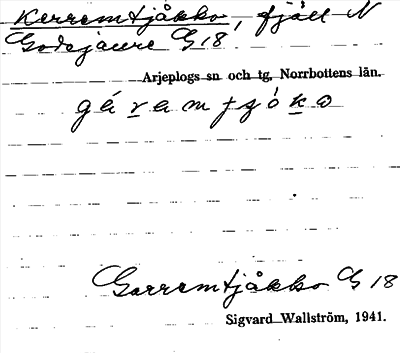 Kerremtjåkko, fjäll N
Godejaure G 18
Arjeplogs sn och tg, Norrbottens län.
gáramtjóko
Garremtjåkko G 18
Sigvard Wallström, 1941.